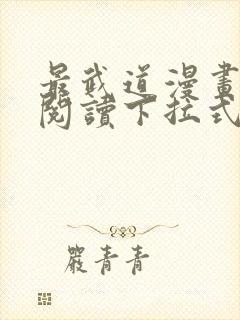 最武道漫畫
閱讀下拉式
嚴青青